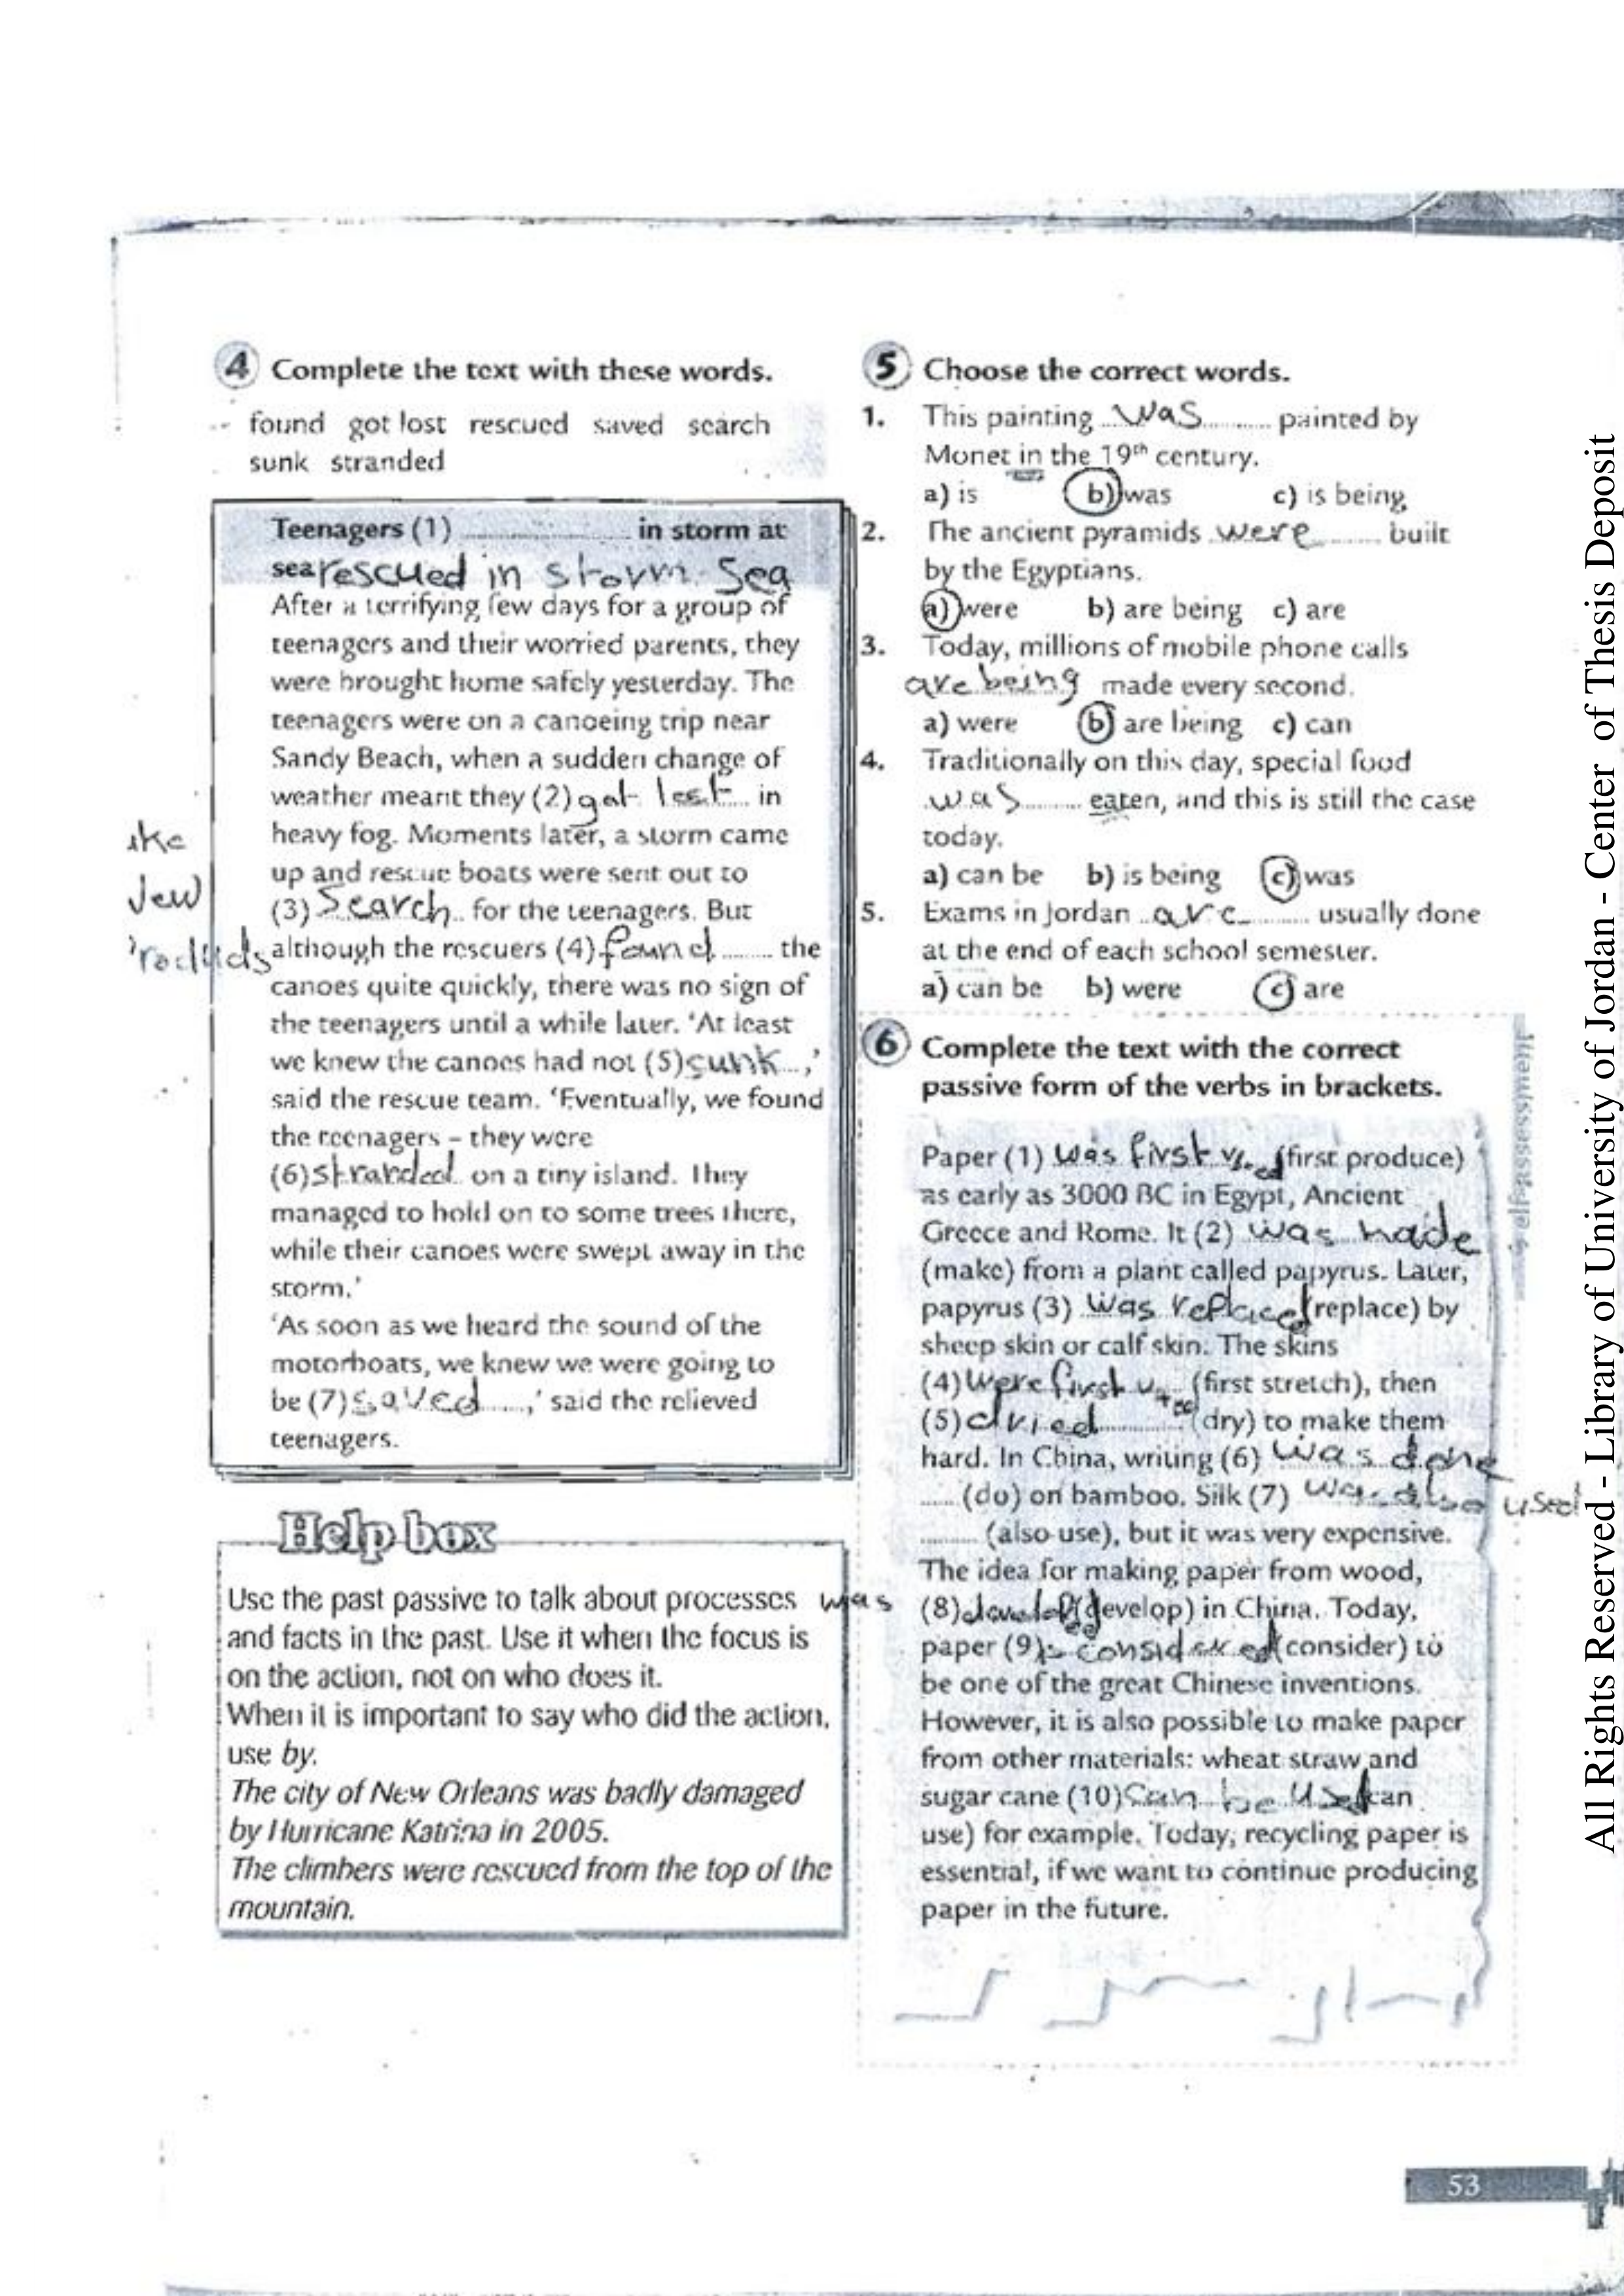 4 Complete the text with these words.
found got lost rescued saved search
sunk stranded
Teenagers (1) .................... in storm at
sea rescued in storm Sea
After a terrifying few days for a group of
teenagers and their worried parents, they
were brought home safely yesterday. The
teenagers were on a canoeing trip near
Sandy Beach, when a sudden change of
weather meant they (2) got lost in
heavy fog. Moments later, a storm came
up and rescue boats were sent out to
(3) Search for the teenagers. But
although the rescuers (4) found the
canoes quite quickly, there was no sign of
the teenagers until a while later. 'At least
we knew the canoes had not (5) sunk ,'
said the rescue team. 'Eventually, we found
the teenagers – they were
(6) stranded on a tiny island. They
managed to hold on to some trees there,
while their canoes were swept away in the
storm.'
'As soon as we heard the sound of the
motorboats, we knew we were going to
be (7) saved ,' said the relieved
teenagers.
Help box
Use the past passive to talk about processes
and facts in the past. Use it when the focus is
on the action, not on who does it.
When it is important to say who did the action,
use by.
The city of New Orleans was badly damaged
by Hurricane Katrina in 2005.
The climbers were rescued from the top of the
mountain.
5 Choose the correct words.
1. This painting was painted by
Monet in the 19th century.
a) is b) was c) is being
2. The ancient pyramids were built
by the Egyptians.
a) were b) are being c) are
3. Today, millions of mobile phone calls
are being made every second.
a) were b) are being c) can
4. Traditionally on this day, special food
was eaten, and this is still the case
today.
a) can be b) is being c) was
5. Exams in Jordan are usually done
at the end of each school semester.
a) can be b) were c) are
6 Complete the text with the correct
passive form of the verbs in brackets.
Paper (1) was first (first produce)
as early as 3000 BC in Egypt, Ancient
Greece and Rome. It (2) was made
(make) from a plant called papyrus. Later,
papyrus (3) was replaced (replace) by
sheep skin or calf skin. The skins
(4) were first (first stretch), then
(5) dried (dry) to make them
hard. In China, writing (6) was done
..... (do) on bamboo. Silk (7) was also used
......... (also use), but it was very expensive.
The idea for making paper from wood,
was (8) (develop) in China. Today,
paper (9) is considered (consider) to
be one of the great Chinese inventions.
However, it is also possible to make paper
from other materials: wheat straw and
sugar cane (10) can be used (can
use) for example. Today, recycling paper is
essential, if we want to continue producing
paper in the future.
self-assessment
53
All Rights Reserved - Library of University of Jordan - Center of Thesis Deposit